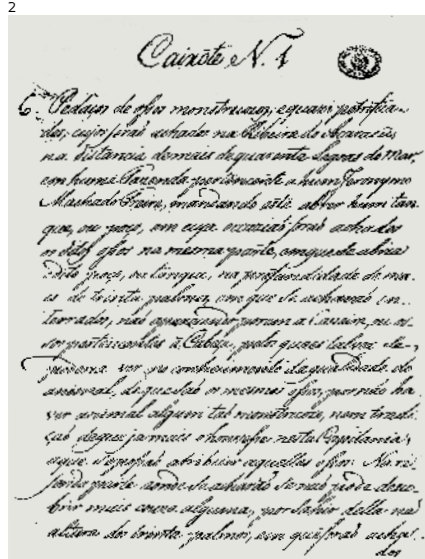 2
Caixóte N. 1
6. Pedaços de ossos monstruozos, e quazi petrifica-
dos, cujos foraõ achados na Ribeira do Acaracú
na distancia de mais de quarenta legoas do Mar,
em huma Fazenda pertencente a hum Jeronymo
Machado Freire, mandando este abrir hum tan-
que, ou poço, em cuja occaziaõ foraõ achados
os ditos ossos na mesma parte, em que se abria
dito poço, ou tanque, na profundidade de ma-
is de trinta palmos, em que se achavaõ en-
terrados, naõ aparecendo porem a Caveira, ou os-
sos pertencentes á Cabeça, pelos quaes talvez se
podesse vir no conhecimento da qualidade do
animal, de que saõ os mesmos ossos, por naõ ha-
ver animal algum taõ monstruozo, nem tradi-
çaõ de que ja mais o houvesse nesta Capitania,
a que se possaõ atribuir aquelles ossos. Na re-
ferida parte aonde se acharaõ se naõ pode desco-
brir mais couza alguma, por sahir della na
altura de trinta palmos, em que foraõ acha-
dos